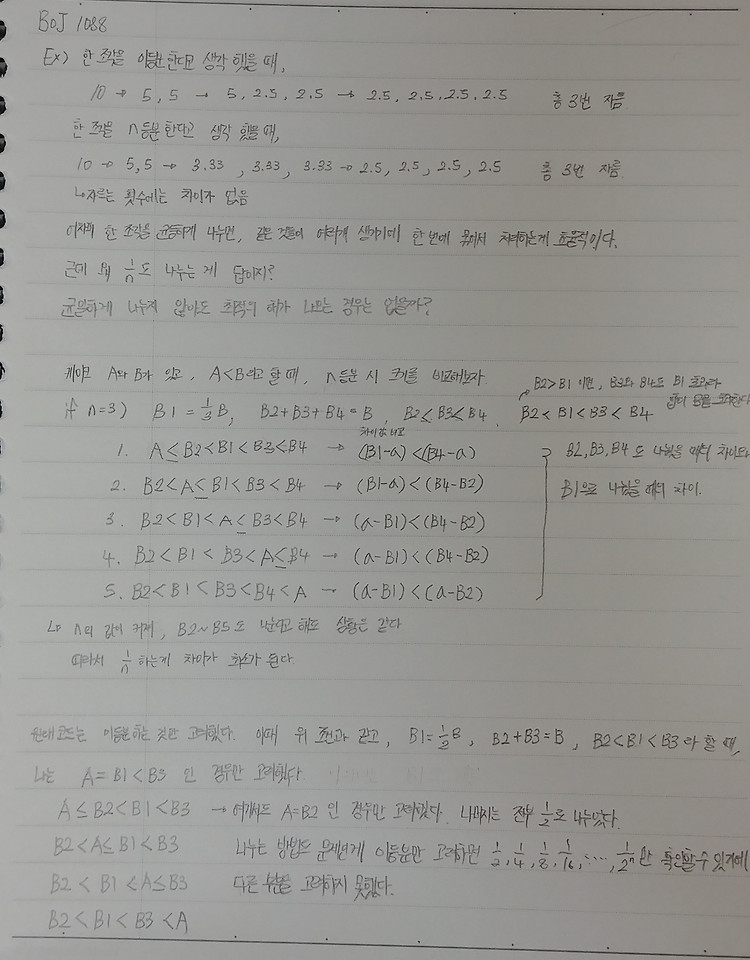 BOJ 1088
Ex) 한 조각을 이등분 한다고 생각 했을 때,
10 → 5, 5 → 5, 2.5, 2.5 → 2.5, 2.5, 2.5, 2.5 총 3번 자름
한 조각을 n등분 한다고 생각 했을 때,
10 → 5,5 → 3.33, 3.33, 3.33 → 2.5, 2.5, 2.5, 2.5 총 3번 자름.
↳자르는 횟수에는 차이가 없음
어차피 한 조각을 균등하게 나누면, 같은 것들이 여러개 생기기에 한 번에 묶어서 처리하는게 효율적이다.
근데 왜 1/n로 나누는 게 답이지?
균일하게 나누지 않아도 최적의 해가 나오는 경우는 없을까?
케이크 A와 B가 있고, A<B라고 할 때, n등분 시 크기를 비교해보자.
B2>B1 이면, B3와 B4도 B1 초과라
합이 B를 초과한다
if n=3) B1 = 1/3 B, B2+B3+B4 = B, B2≤B3≤B4, B2<B1<B3<B4
차이값 비교
1. A≤B2<B1<B3≤B4 → (B1-a)<(B4-a)
2. B2<A≤B1<B3<B4 → (B1-a)<(B4-B2)
3. B2<B1<A≤B3<B4 → (a-B1)<(B4-B2)
4. B2<B1<B3<A≤B4 → (a-B1)<(B4-B2)
5. B2<B1<B3<B4<A → (a-B1)<(a-B2)
B2, B3, B4로 나눴을 때의 차이보다
B1으로 나눴을 때의 차이.
↳ n의 값이 커져, B2~B5로 나눈다고 해도 상황은 같다
따라서 1/n 하는게 차이가 최소가 된다.
원래 코드는 이등분하는 것만 고려했다. 이때 위 조건과 같고, B1=1/2B, B2+B3=B, B2<B1<B3라 할 때,
나는 A=B1<B3 인 경우만 고려했다.
A≤B2<B1<B3 → 여기서도 A=B2 인 경우만 고려했다. 나머지는 전부 1/2로 나누었다.
B2<A≤B1<B3 나누는 방법도 문제인게 이등분만 고려하면 1/2, 1/4, 1/8, 1/16, ..., 1/2ⁿ만 확인할 수 있기에
B2<B1<A≤B3 다른 부분을 고려하지 못했다.
B2<B1<B3<A